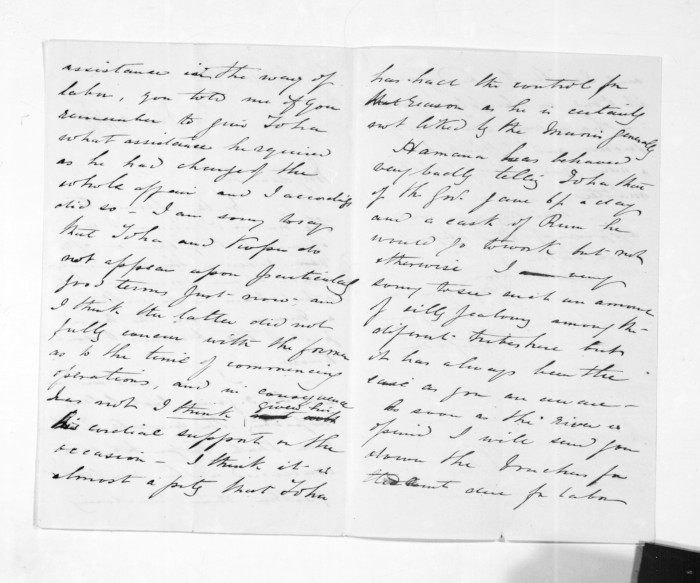 assistance in the way of
labor, you told me if you
remember to give Toha
what assistance he required
as he had charge of the
whole affair and I accordingly
did so - I am sorry to say
that Toha and do
not appear upon particularly
good terms just now - and
I think the latter did not
fully concur with the former
as to the time of commencing
operations, and in consequence
has not I think given his
cordial support on the
occasion - I think it is
almost a pity that Toha
has had the control for
that reason as he is certainly
not liked by the Maoris generally
Hamana has behaved
very badly telling Toha that
if the Govt gave 6/ a day
and a cask of Rum he
would go to work but not
otherwise I very
sorry to see such an amount
of silly jealousy among the
different tribes here but
it has always been the
case as you are aware -
As soon as the river is
opened I will send you
down the Vouchers for
the amt due for labor